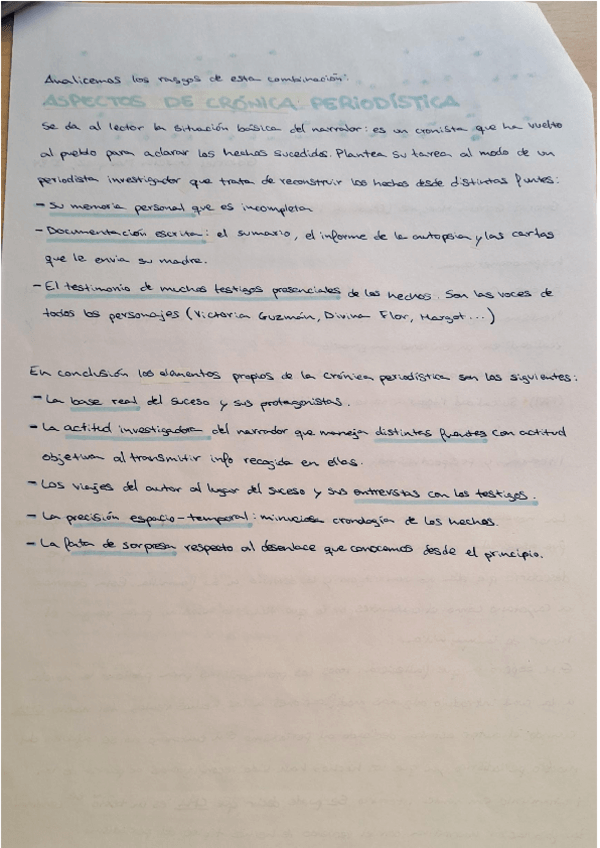 Analicemos los rasgos de esta combinación:
ASPECTOS DE CRÓNICA PERIODÍSTICA
Se da al lector la situación básica del narrador: es un cronista que ha vuelto
al pueblo para aclarar los hechos sucedidos. Plantea su tarea al modo de un
periodista investigador que trata de reconstruir los hechos desde distintas fuentes:
- Su memoria personal que es incompleta.
- Documentación escrita: el sumario, el informe de la autopsia y las cartas
que le envia su madre.
- El testimonio de muchos testigos presenciales de los hechos. Son las voces de
todos los personajes (Victoria Guzmán, Divina Flor, Margot...)
En conclusión los elementos propios de la crónica periodística son los siguientes:
- La base real del suceso y sus protagonistas.
- La actitud investigadora del narrador que maneja distintas fuentes con actitud
objetiva al transmitir info recogida en ellas.
- Los viajes del autor al lugar del suceso y sus entrevistas con los testigos.
- La precisión espacio-temporal: minuciosa cronología de los hechos.
- La falta de sorpresa respecto al desenlace que conocemos desde el principio.